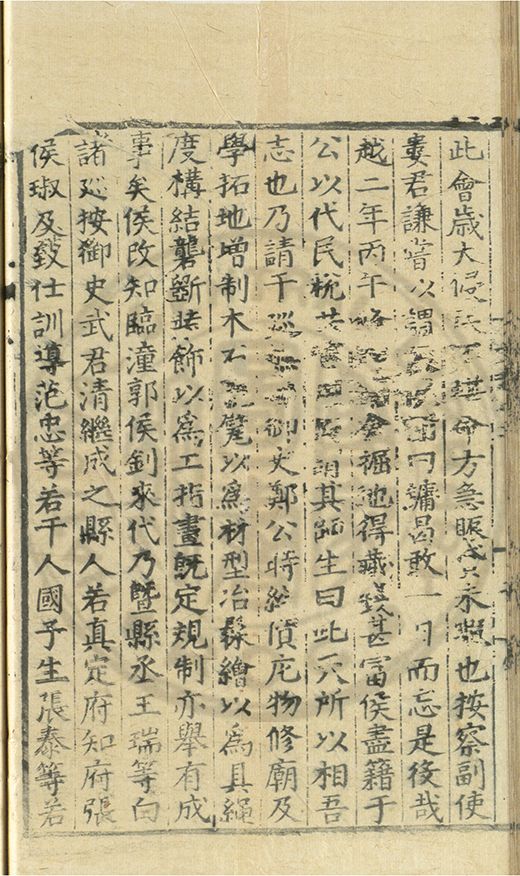 此會歲大祲民不堪命方急賑貸未暇也按察副使
婁君謙嘗以謂侯曰鏞曷敢一日而忘是役哉
越二年丙午會掘地得藏甚富侯盡籍于
公以代民稅其生曰此天所以相吾
志也乃請于巡御史鄭公時經費庀物修廟及
學拓地增制木石甓以為材型冶髹繪以為具繩
度構結礱斵裝飾以為工指畫既定規制亦舉有成
事矣侯改知臨潼郭侯釗來代乃暨縣丞王瑞等白
諸廵按御史武君清繼成之縣人若真定府知府張
侯琡及致仕訓導范忠等若干人國子生張泰等若